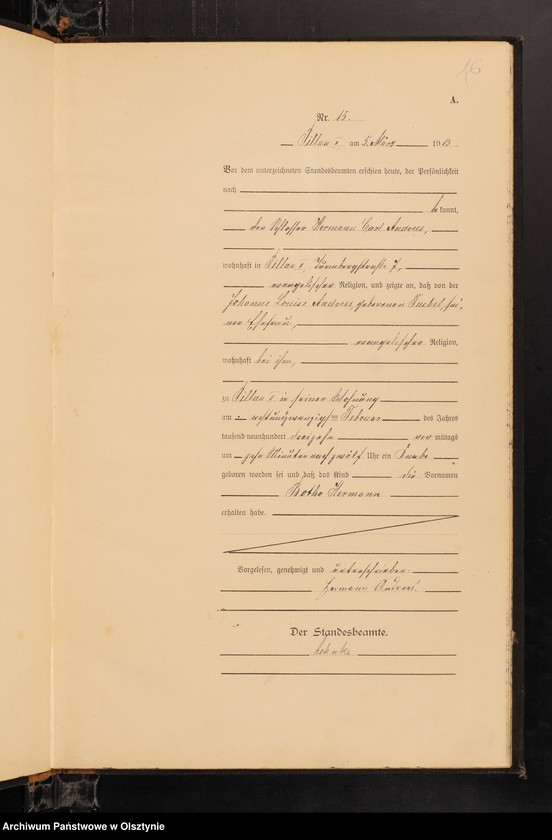 16
A.
Nr. 15.
Pillau II, am 5. März 1913.
Vor dem unterzeichneten Standesbeamten erschien heute, der Persönlichkeit
nach
bekannt,
der Schlosser Hermann Carl Andres,
wohnhaft in Pillau II, 7,
evangelischer Religion, und zeigte an, daß von der
Johanne Louise Andres, geborenen sei-
ner Ehefrau,
evangelischer Religion,
wohnhaft bei ihm,
zu Pillau II in seiner Wohnung
am achtundzwanzigsten Februar des Jahres
tausend neunhundert dreizehn vor mittags
um zehn Minuten nach zwölf Uhr ein Knabe
geboren worden sei und daß das Kind die Vornamen
Botho Hermann
erhalten habe.
Vorgelesen, genehmigt und unterschrieben
Hermann Andres.
Der Standesbeamte.
Archiwum Państwowe w Olsztynie